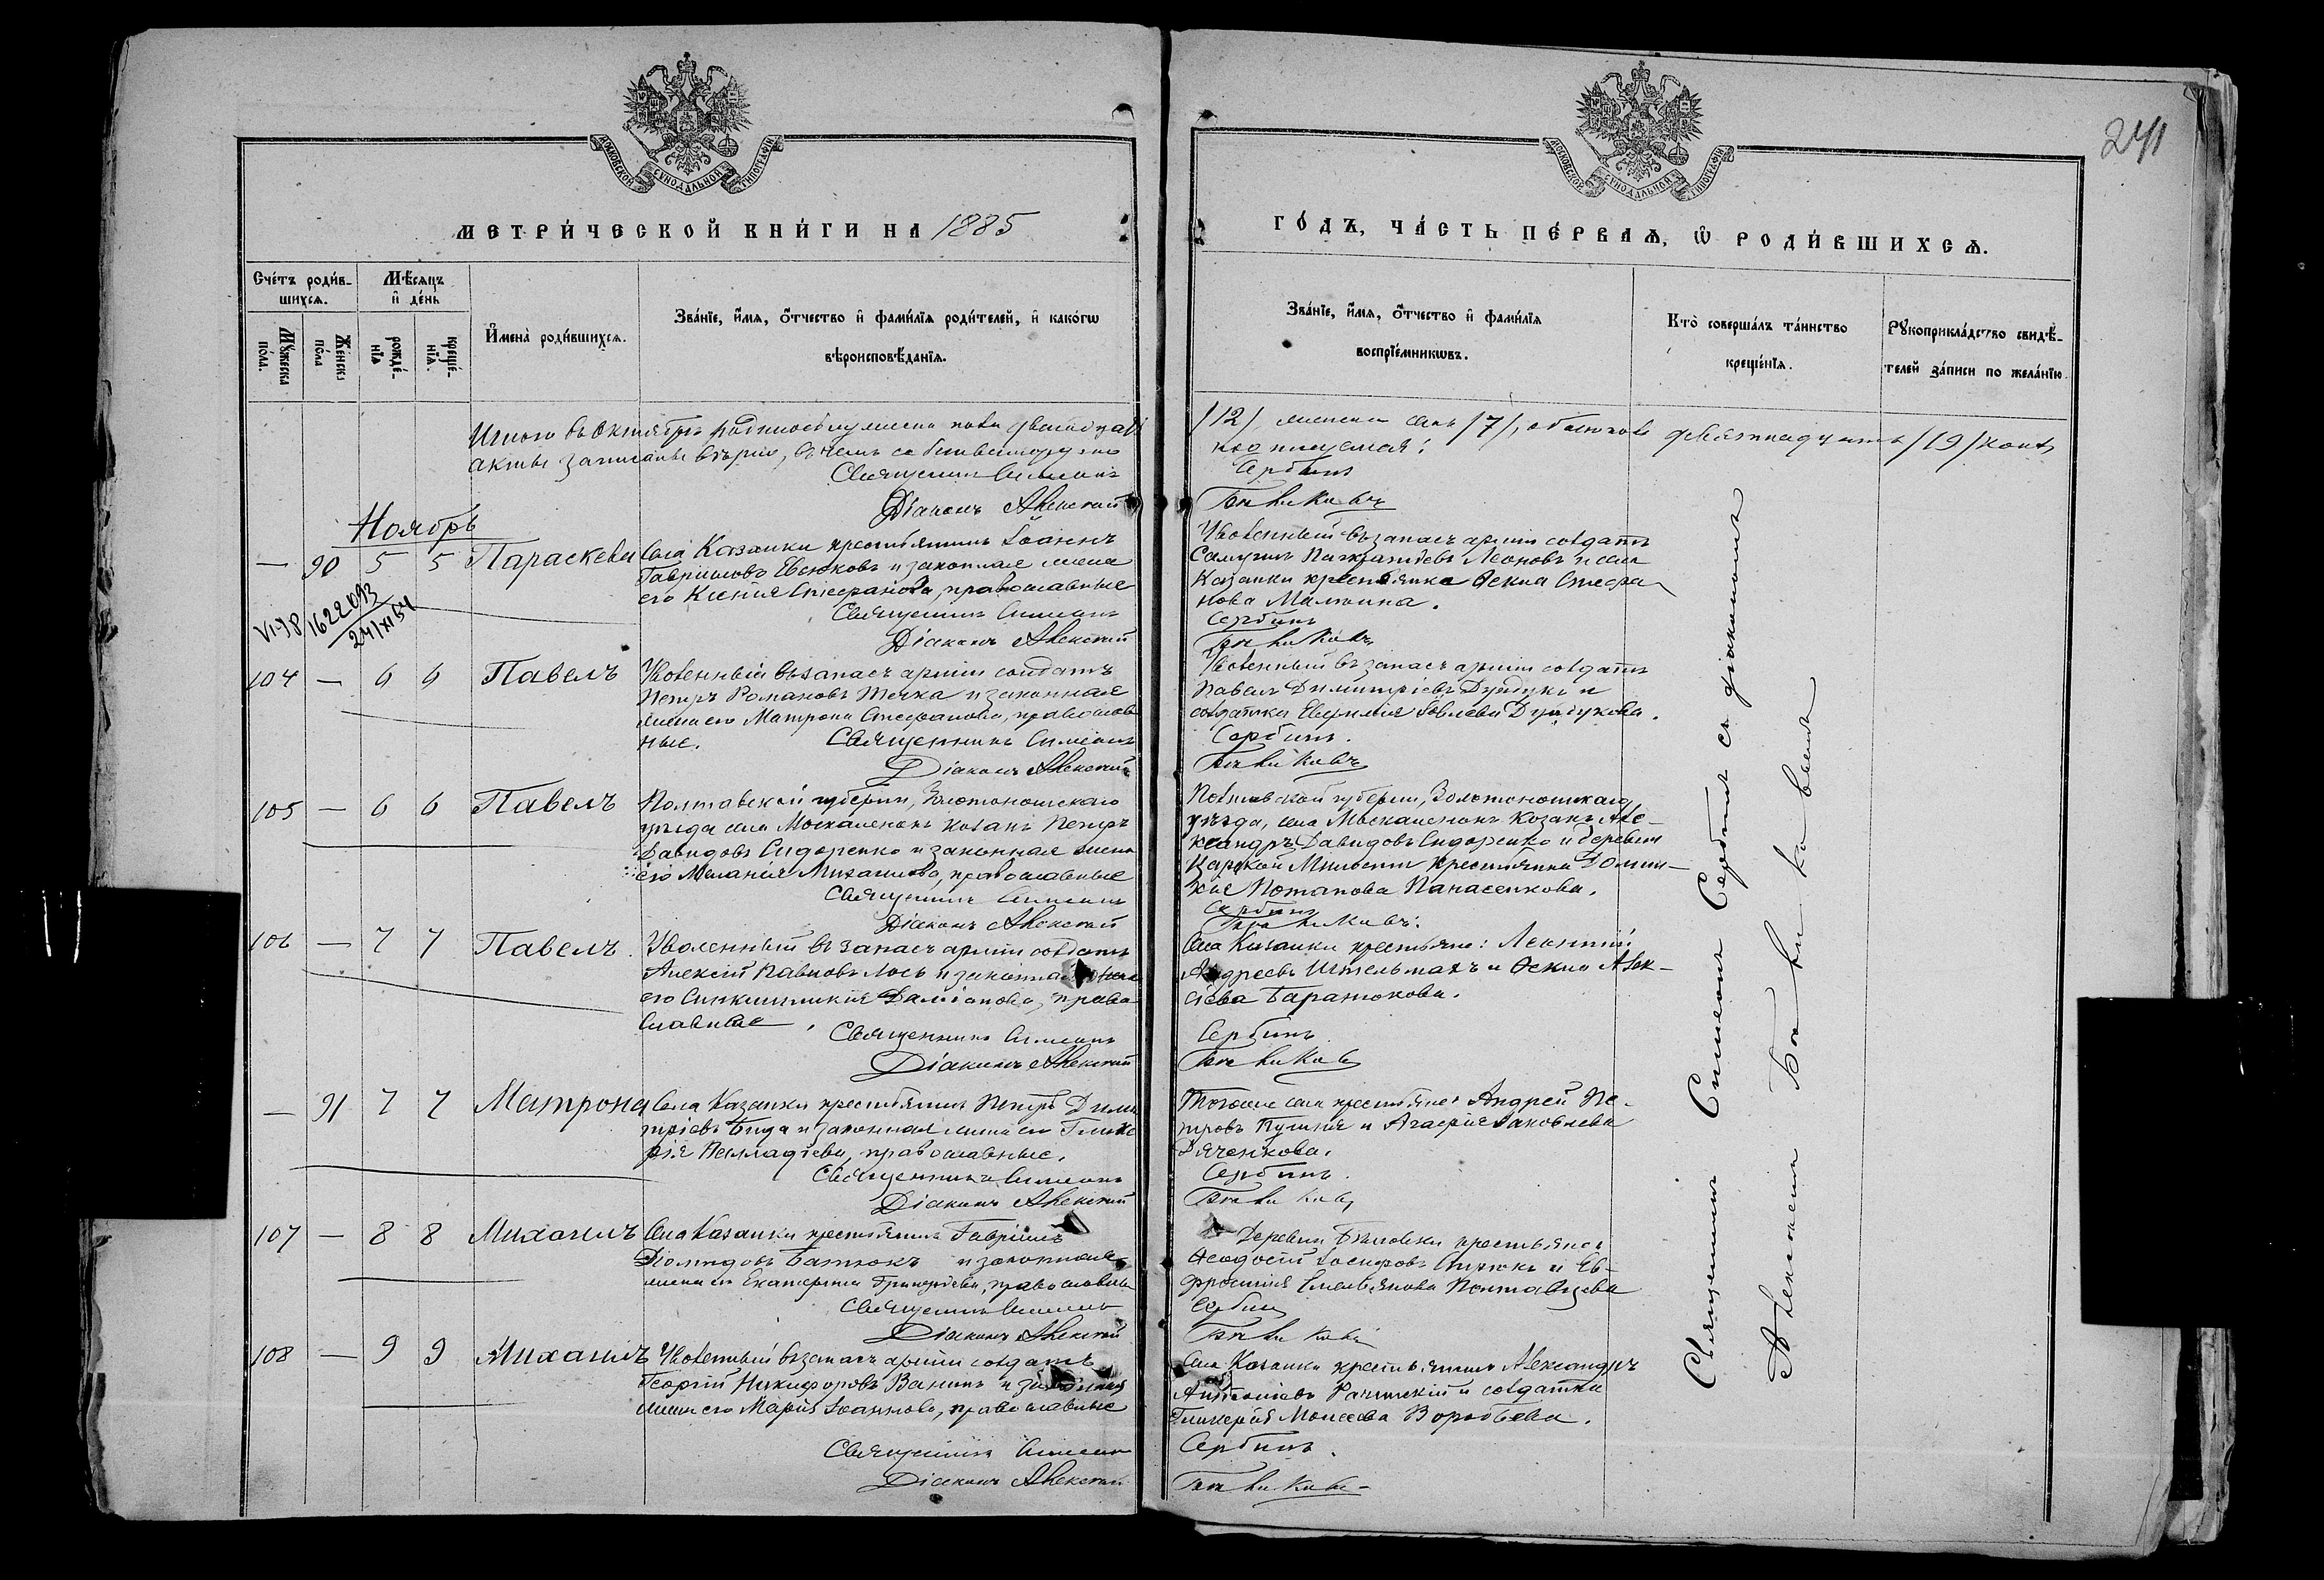 241
МОСКОВСКОЙ СѴНОДАЛЬНОЙ ТИПОГРАФІИ
МОСКОВСКОЙ СѴНОДАЛЬНОЙ ТИПОГРАФІИ
МЕТРИ́ЧЕСКОЙ КНИ́ГИ НА 1885
ГО́ДЪ, ЧА́СТЬ ПЕ́РВАѦ, Ѡ҆ РОДИ́ВШИХСѦ.
Сче́тъ роди́в-
шихсѧ.
Мꙋжеска по́ла.
Же́нска по́ла
Мѣ́сѧцъ
и҆ де́нь
рожде́-
нїѧ
креще́-
нїѧ.
И҆мена̀ роди́вшихсѧ.
Зва́нїе, и҆́мѧ, ѻ҆́тчество и҆ фами́лїѧ роди́телей, и҆ како́гѡ
вѣроисповѣ́данїѧ.
Зва́нїе, и҆́мѧ, ѻ҆́тчество и҆ фами́лїѧ
воспрїе́мникѡвъ.
Кто̀ соверша́лъ та́инство
креще́нїѧ.
Рꙋкоприкла́дство свидѣ́-
телей за́писи по жела́нїю.
Итого въ Октябрѣ родилось мужеска пола двенадцать /12/, женска семь /7/, обоихъ девятнадцать /19/ коихъ
акты записаны вѣрно, въ чемъ собственноручно подписуемся:
Священникъ Симеонъ Сербинъ
Діаконъ Алексій
Ноябрь
— 90 5 5 Параскева
Села Казанки крестьянинъ Іоаннъ
Гавріиловъ Евсюковъ и законная жена
его Ксенія Стефанова, православные
Священникъ Симеонъ
Діаконъ Алексій
Уволенный въ запасъ арміи солдатъ
Леоновъ и села
Казанки крестьянка Ѳекла Стефа-
нова
Сербинъ
VI-98 1622093
24/XI 54
104 — 6 6 Павелъ
Уволенный въ запасъ арміи солдатъ
Петръ Романовъ и законная
жена его Матрона Стефанова, православ
ные. Священникъ Симеонъ
Діаконъ Алексій
Уволенный въ запасъ арміи солдатъ
Павелъ Димитріевъ Дундукъ и
солдатка Евфимія Іовлева Дундукова.
Сербинъ.
105 — 6 6 Павелъ
Полтавской губерніи, Золотоношскаго
уѣзда села Москаленокъ козакъ Петръ
Давидовъ Сидоренко и законная жена
его Меланія Михаилова, православные
Священникъ Симеонъ
Діаконъ Алексій
Полтавской губерніи, Золотоношскаго
уѣзда, села Москаленокъ козакъ Але-
ксандръ Давидовъ Сидоренко и деревни
Царской Милости крестьянка Домни-
кія Потапова Панасенкова.
Сербинъ
106 — 7 7 Павелъ.
Уволенный въ запасъ арміи солдатъ
Алексій Павловъ Лось и законная жена
его Синклитикія Даміанова, право
славные. Священникъ Симеонъ
Діаконъ Алексій
Села Казанки крестьяне: Леонтій
Андреевъ Штельмахъ и Ѳекла Алек-
сіева
Сербинъ
— 91 7 7 Матрона
Села Казанки крестьянинъ Петръ Дими
тріевъ Бида и законная жена его Глике
рія Палладіева, православные.
Священникъ Симеонъ
Діаконъ Алексій
Тогоже села крестьяне: Андрей Пе-
тровъ и Агафія Яковлева
Дяченкова.
Сербинъ.
107 — 8 8 Михаилъ
Села Казанки крестьянинъ Гавріилъ
Діомидовъ Батюкъ и законная
жена его Екатерина Григоріева, православные
Священникъ Симеонъ
Діаконъ Алексій
Деревни крестьяне:
Ѳеодосій Іосифовъ и Ев-
фросинія Емельянова Полтавцева
Сербинъ
108 — 9 9 Михаилъ
Уволенный въ запасъ арміи солдатъ
Георгій Никифоровъ Ванинъ и законная
жена его Марія Іоаннова, православные
Священникъ Симеонъ
Діаконъ Алексій
Села Казанки крестьянинъ Александръ
Антоніевъ и солдатка
Гликерія Моисеева Воробьева.
Сербинъ.
Священникъ Симеонъ Сербинъ съ діакономъ
Алексіемъ